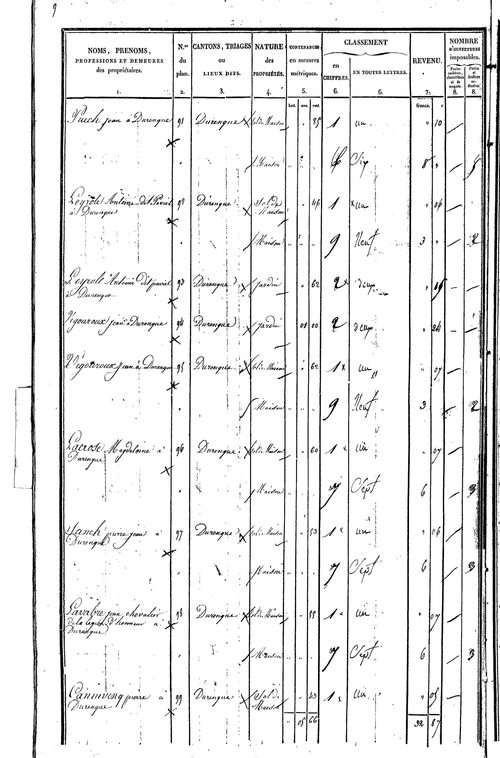 9
NOMS, PRENOMS, PROFESSIONS ET DEMEURES des propriétaires. N.os du plan. CANTONS, TRIAGES ou LIEUX DITS. NATURE des PROPRIÉTÉS. CONTENANCES en mesures métriques. CLASSEMENT en CHIFFRES. EN TOUTES LETTRES. REVENU. NOMBRE D'OUVERTURES imposables.
1. 2. 3. 4. 5. 6. 6. 7. 8. 8.
francs. c
Puech jean à Durengue 91 Durengue Sol de Maison 85 1 un 10
Maison 6 Six 8
Leyrole Antoine dit
à Durengue 92 Durengue Sol de Maison 46 1 un 06
Maison 9 Neuf 3 2
Leyrole Antoine dit
à Durengue 93 Durengue Jardin 62 2 deux 15
Vigouroux jean à Durengue 94 Durengue Jardin 01 00 2 deux 24
Vigouroux jean à Durengue 95 Durengue Sol de Maison 62 1 un 07
Maison 9 Neuf 3 2
Lacrose Magdeleine à
Durengue 96 Durengue Sol de Maison 60 1 un 07
Maison 7 Sept 6 3
pierre jean à
Durengue 97 Durengue Sol de Maison 53 1 un 06
Maison 7 Sept 6 3
jean chevalier
de la legion d'honneur à
Durengue 98 Durengue Sol de Maison 55 1 un 07
Maison 7 Sept 6 3
pierre à
Durengue 99 Durengue Sol de Maison 23 1 un 05
05 66 32 87